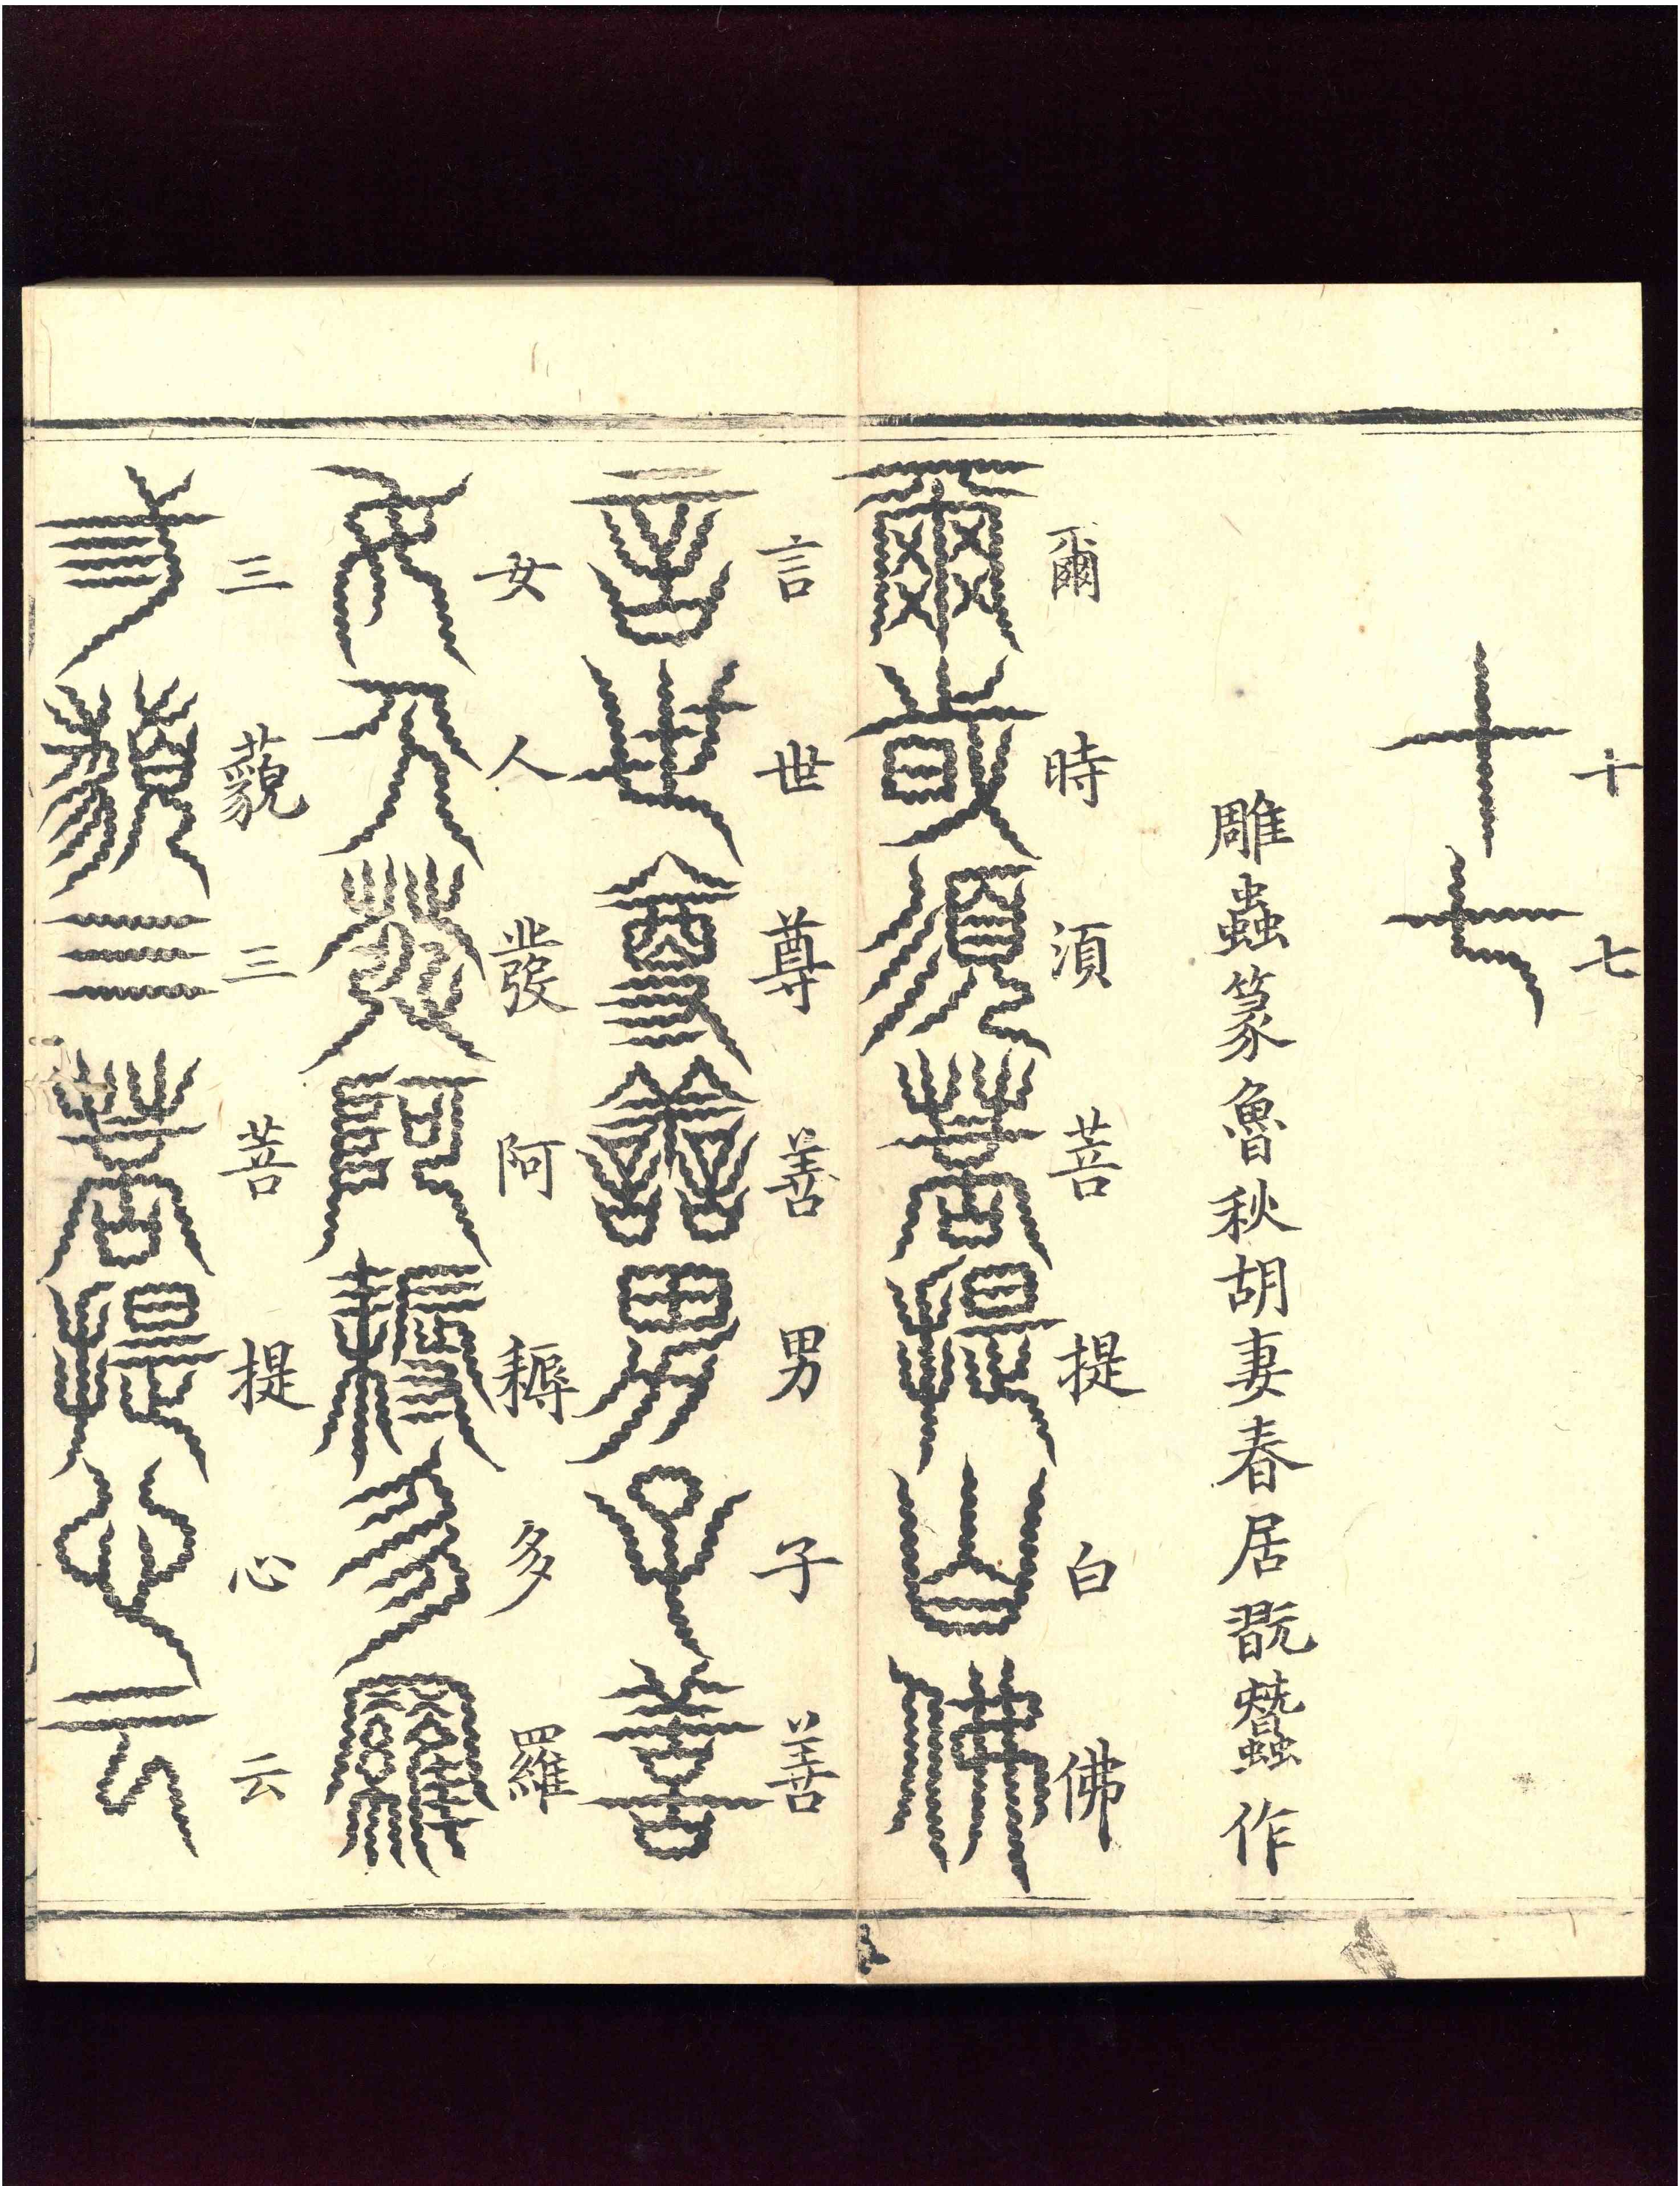 十七
十七
雕蟲篆魯秋胡妻春居翫蠶作
爾時湏菩提白佛
爾時須菩提白佛
言世尊善男子善
言世尊善男子善
女人發阿耨多羅
女人發阿耨多羅
三藐三菩提心云
三藐三菩提心云